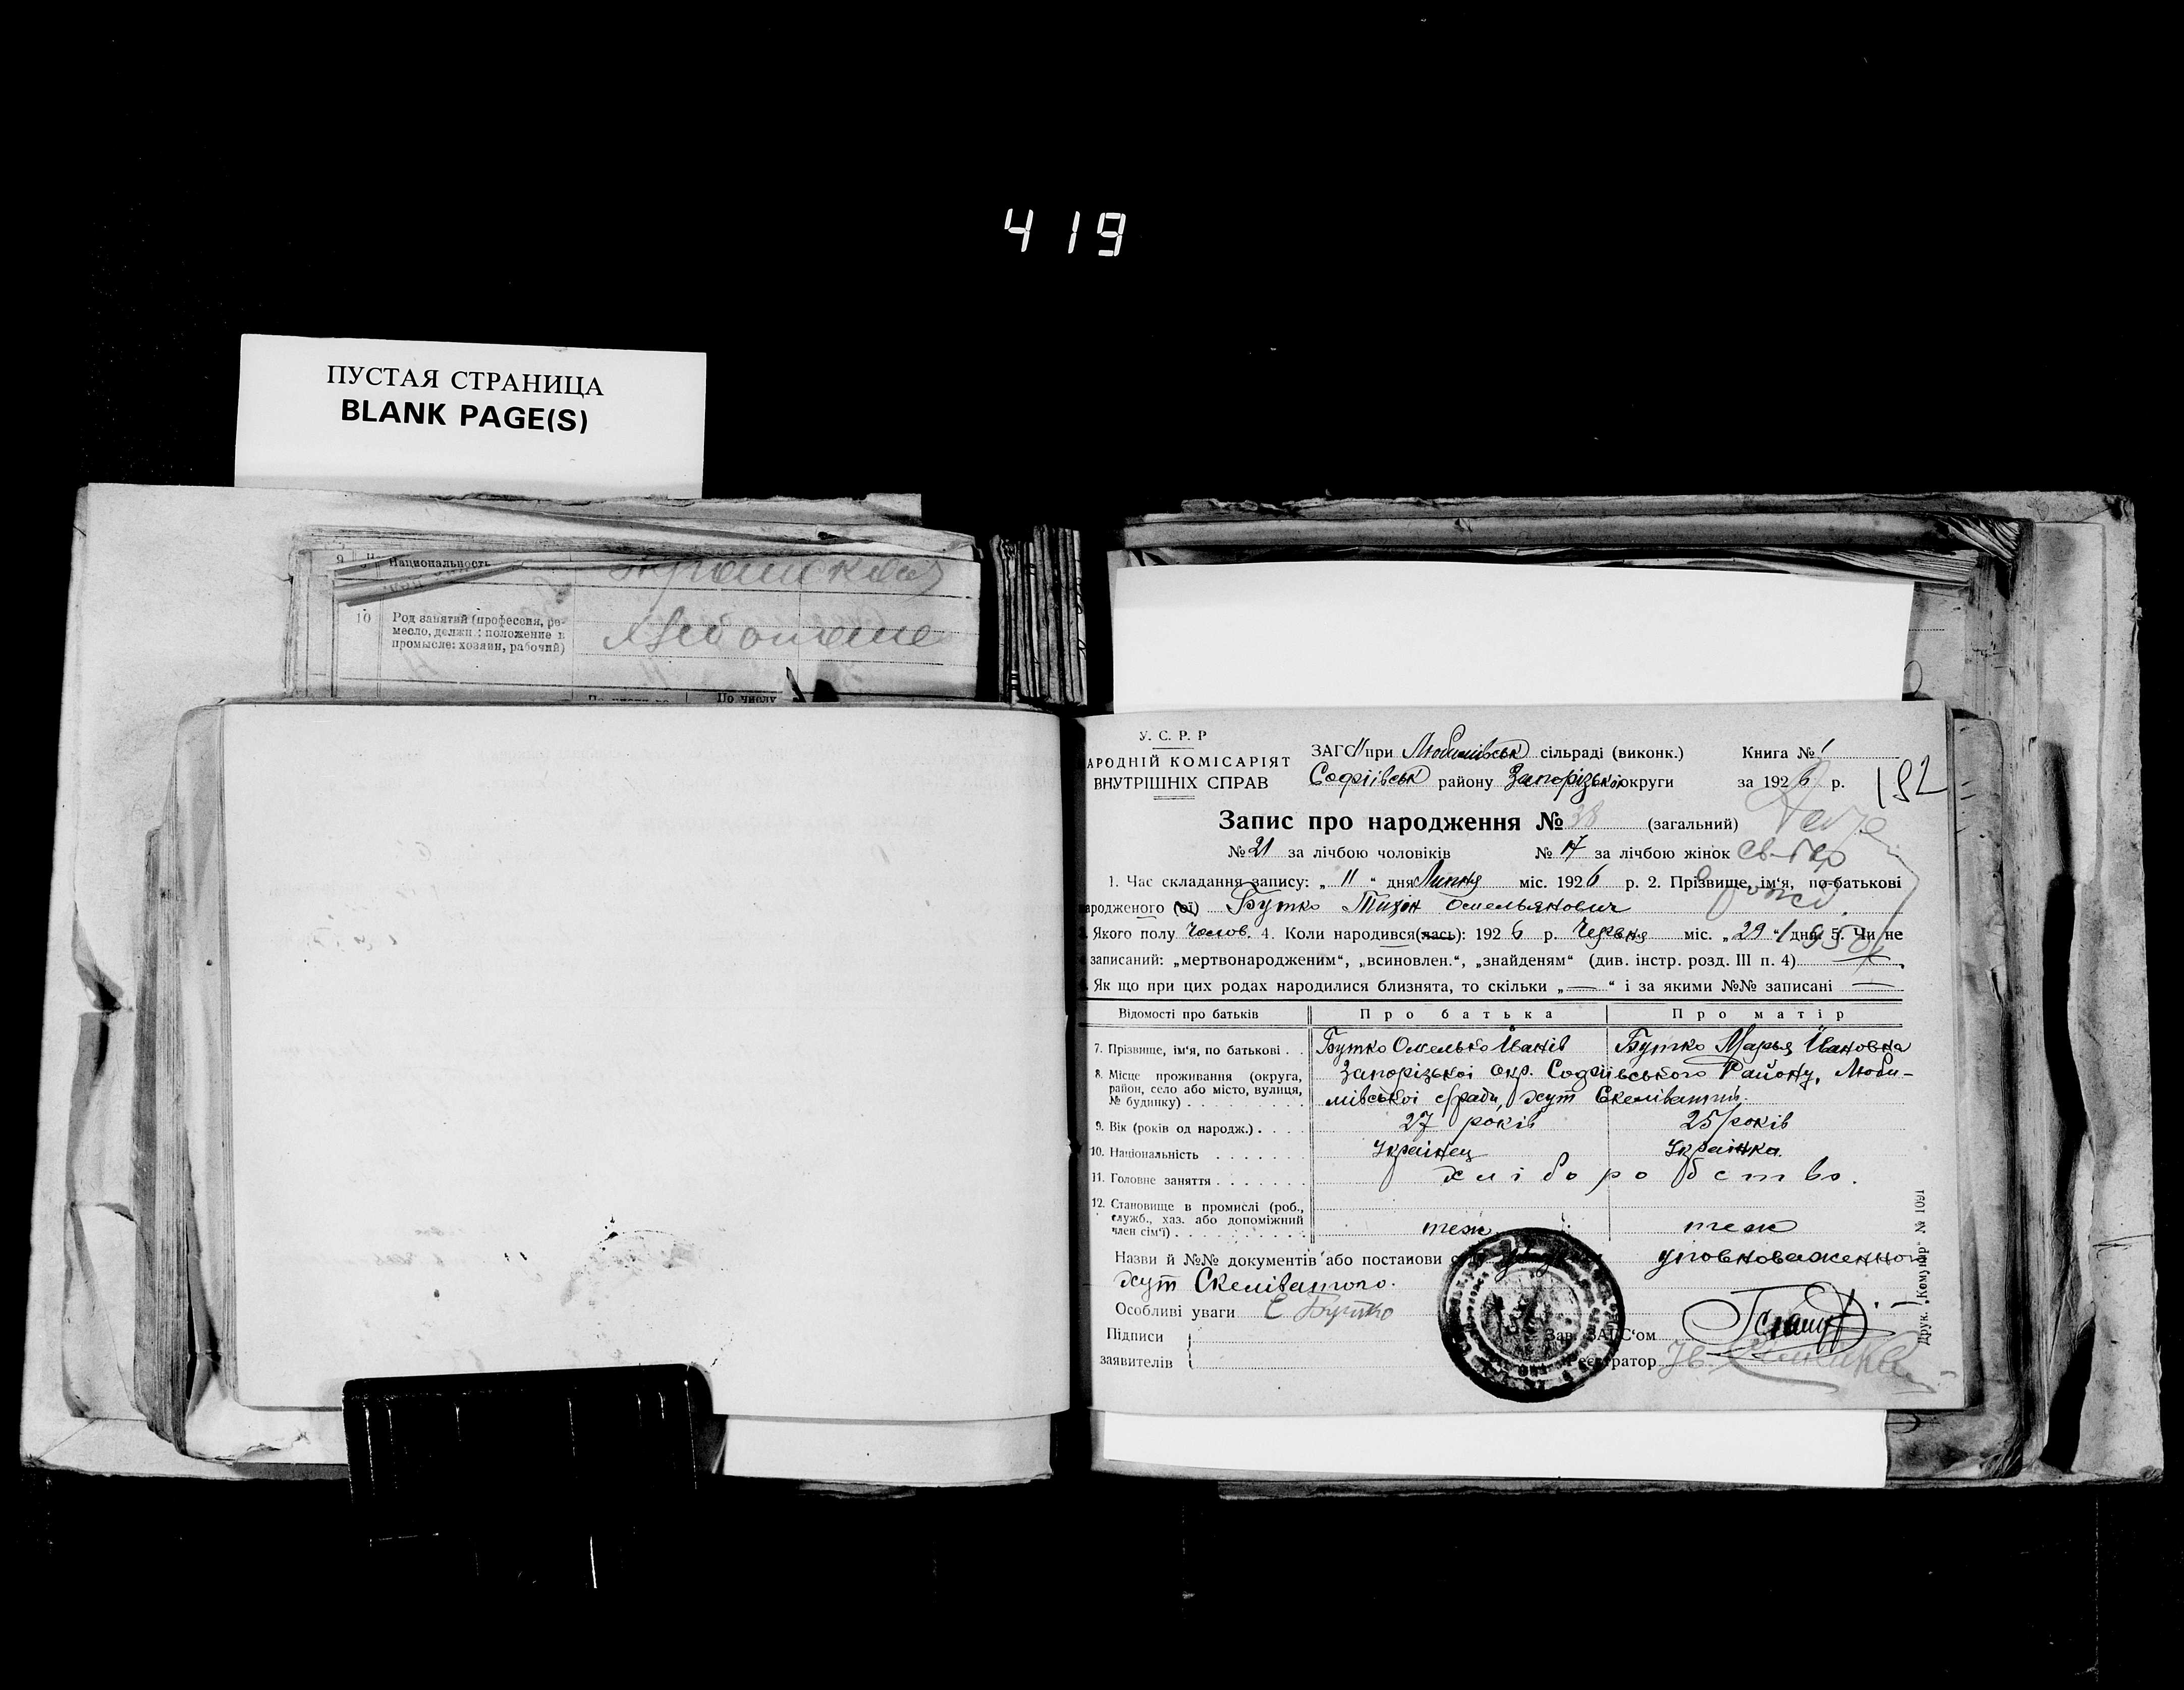 419
ПУСТАЯ СТРАНИЦА
BLANK PAGE(S)
9 Национальность
10 Род занятий (профессия, ре-
месло, должн.: положение в
промысле: хозяин, рабочий)
По числу
У. С. Р. Р
АРОДНІЙ КОМІСАРІЯТ
ВНУТРІШНІХ СПРАВ
ЗАГС при Любимівськ сільраді (виконк.) Книга № 1
Софіївськ району Запорізької округи за 1926 р.
192
Запис про народження № 38 (загальний)
№ 21 за лічбою чоловіків № 17 за лічбою жінок
1. Час складання запису: „ 11 “ дня Липня міс. 1926 р. 2. Прізвище, ім‘я, по-батькові
ародженого (ої) Бутко Тихон Омельянович
Якого полу Чолов. 4. Коли народився(лась): 1926 р. Червня міс. „ 29 “ дня 5. Чи не
записаний: „мертвонародженим“, „всиновлен.“, „знайденям“ (див. інстр. розд. III п. 4)
Як що при цих родах народилися близнята, то скільки „ — “ і за якими №№ записані —
Відомості про батьків Про батька Про матір
7. Прізвище, ім‘я, по батькові . . Бутко Омелько Іванів Бутко Марья Ивановна
8. Місце проживання (округа, район, село або місто, вулиця, № будинку) Запорізькоі Окр. Софиівського Району, Люби-
мівськоі с/ради, хут Скеліватий.
9. Вік (років од народж.) . 27 років 25 років
10. Національність Українец Українка.
11. Головне заняття хліборобство.
12. Становище в промислі (роб., служб., хаз. або допоміжний член сім‘ї) теж теж
Назви й №№ документів або постанови уповноваженного
хут Скеліватого.
Особливі уваги Є Бутко
Підписи
заявителів
Зав. ЗАГС‘ом
Реєстратор
Друк. „Комунар“ № 1091